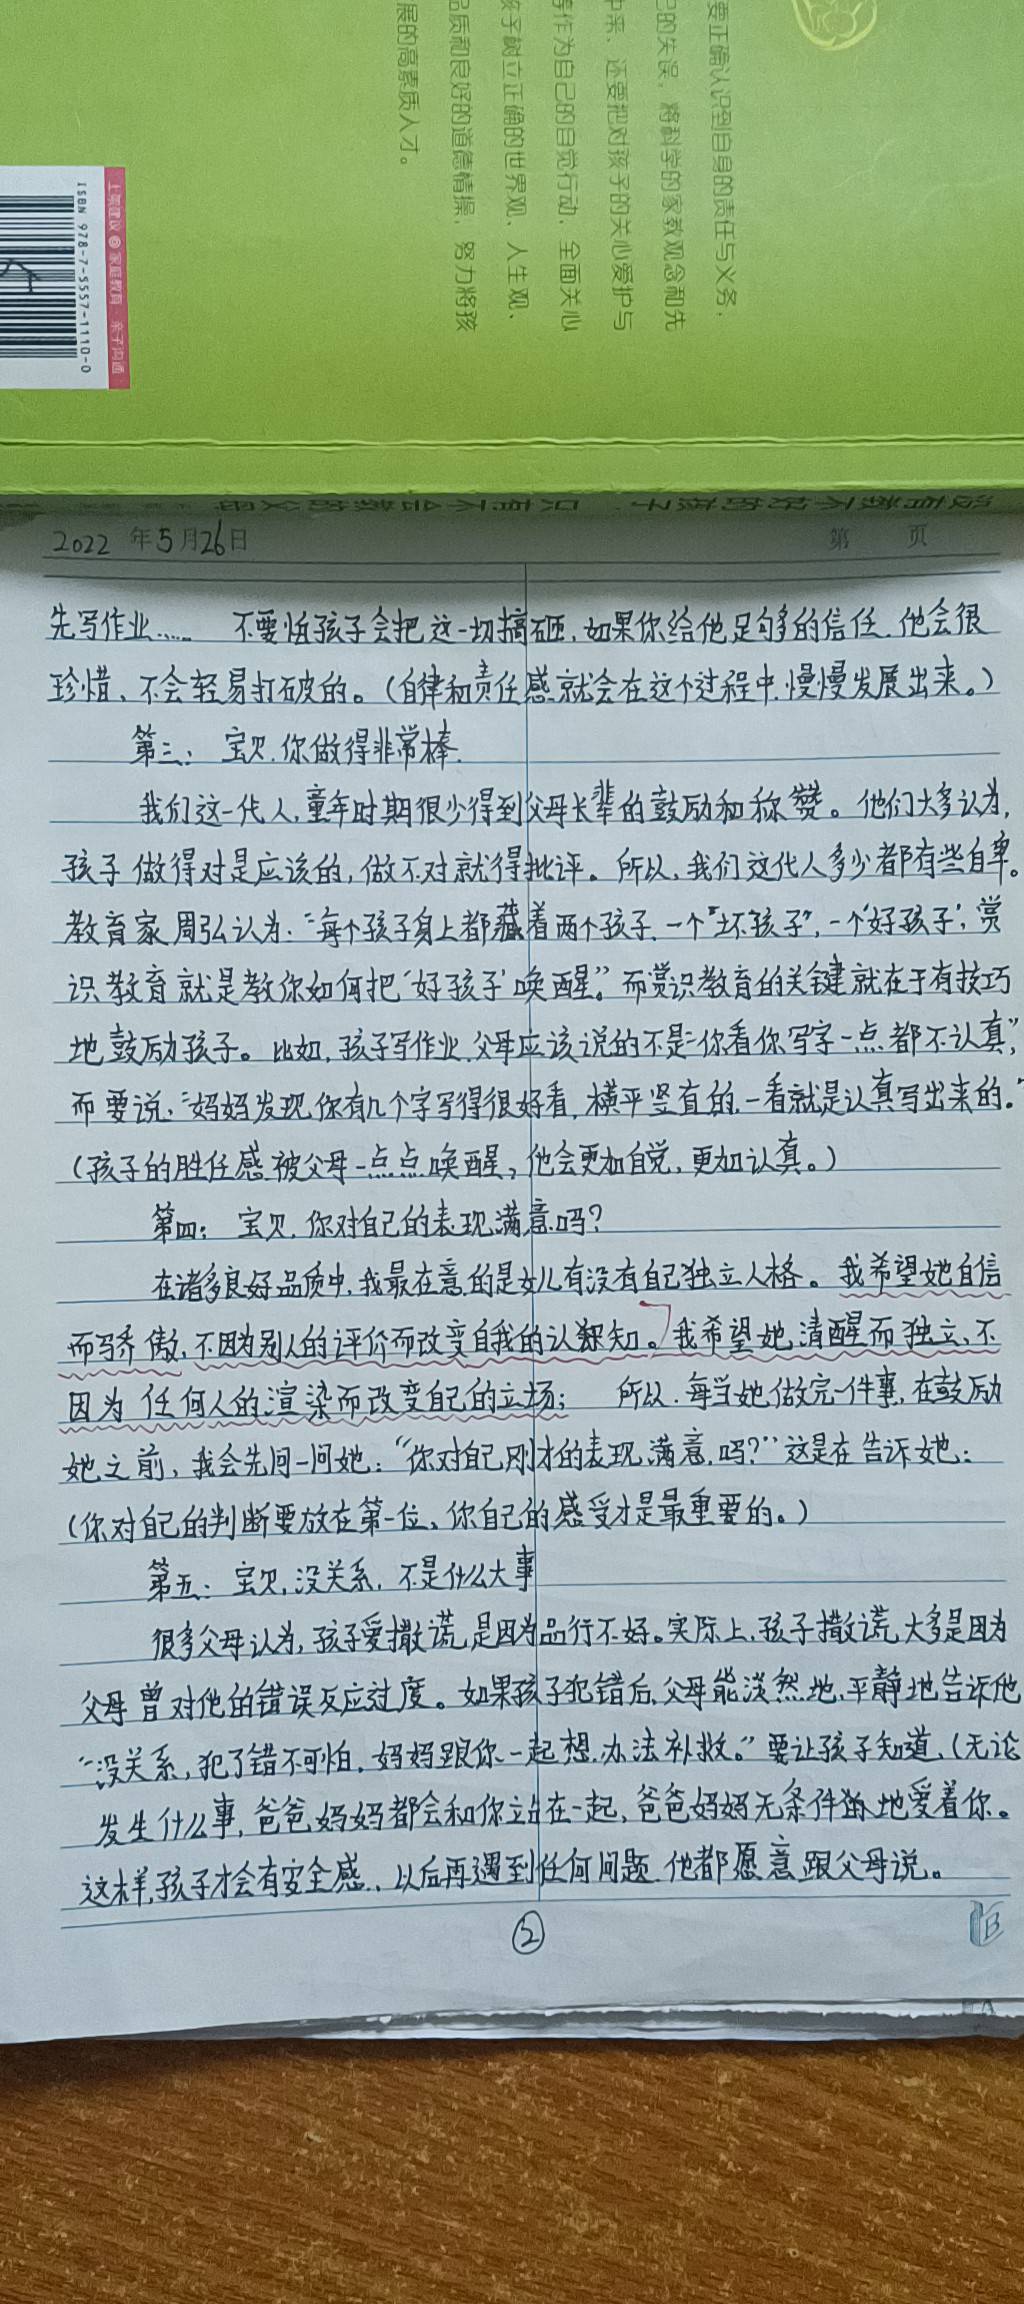 要正确认识到自身的责任与义务，
己的失误，将科学的家教观念和先
中来，还要把对孩子的关心爱护与
等作为自己的自觉行动，全面关心
孩子树立正确的世界观、人生观、
品质和良好的道德情操，努力将孩
展的高素质人才。
上架建议◎家庭教育 亲子沟通
ISBN 978-7-5557-1110-0
没有教不好的孩子 只有不会教的父母
2022 年5月26日 第 页
先写作业…… 不要怕孩子会把这一切搞砸,如果你给他足够多的信任,他会很
珍惜、不会轻易打破的。(自律和责任感就会在这个过程中,慢慢发展出来。)
第三: 宝贝,你做得非常棒.
我们这一代人,童年时期很少得到父母长辈的鼓励和称赞。他们大多认为,
孩子做得对是应该的,做不对就得批评。所以,我们这代人多少都有些自卑。
教育家周弘认为:“每个孩子身上都藏着两个孩子,一个“坏孩子”,一个‘好孩子’;赏
识教育就是教你如何把‘好孩子’唤醒。”而赏识教育的关键就在于有技巧
地鼓励孩子。比如,孩子写作业,父母应该说的不是“你看你写字一点都不认真”,
而要说:“妈妈发现你有几个字写得很好看,横平竖直的,一看就是认真写出来的。”
(孩子的胜任感被父母一点点唤醒,他会更加自觉,更加认真。)
第四: 宝贝,你对自己的表现满意吗?
在诸多良好品质中,我最在意的是女儿有没有自己独立人格。我希望她自信
而骄傲,不因为别人的评价而改变自我的认知。我希望她清醒而独立、不
因为任何人的渲染而改变自己的立场; 所以,每当她做完一件事,在鼓励
她之前,我会先问一问她:“你对自己刚才的表现满意吗?”这是在告诉她:
(你对自己的判断要放在第一位、你自己的感受才是最重要的。)
第五: 宝贝,没关系,不是什么大事
很多父母认为,孩子爱撒谎是因为品行不好。实际上,孩子撒谎,大多是因为
父母曾对他的错误反应过度。如果孩子犯错后,父母能淡然地,平静地告诉他
“没关系,犯了错不可怕,妈妈跟你一起想办法补救。”要让孩子知道,(无论
发生什么事,爸爸妈妈都会和你站在一起,爸爸妈妈无条件地爱着你。
这样,孩子才会有安全感、以后再遇到任何问题,他都愿意跟父母说。
②
B
A